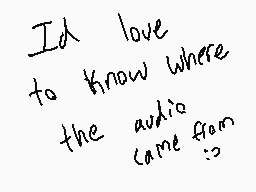 Id love
to know where
the audio
came from
:D